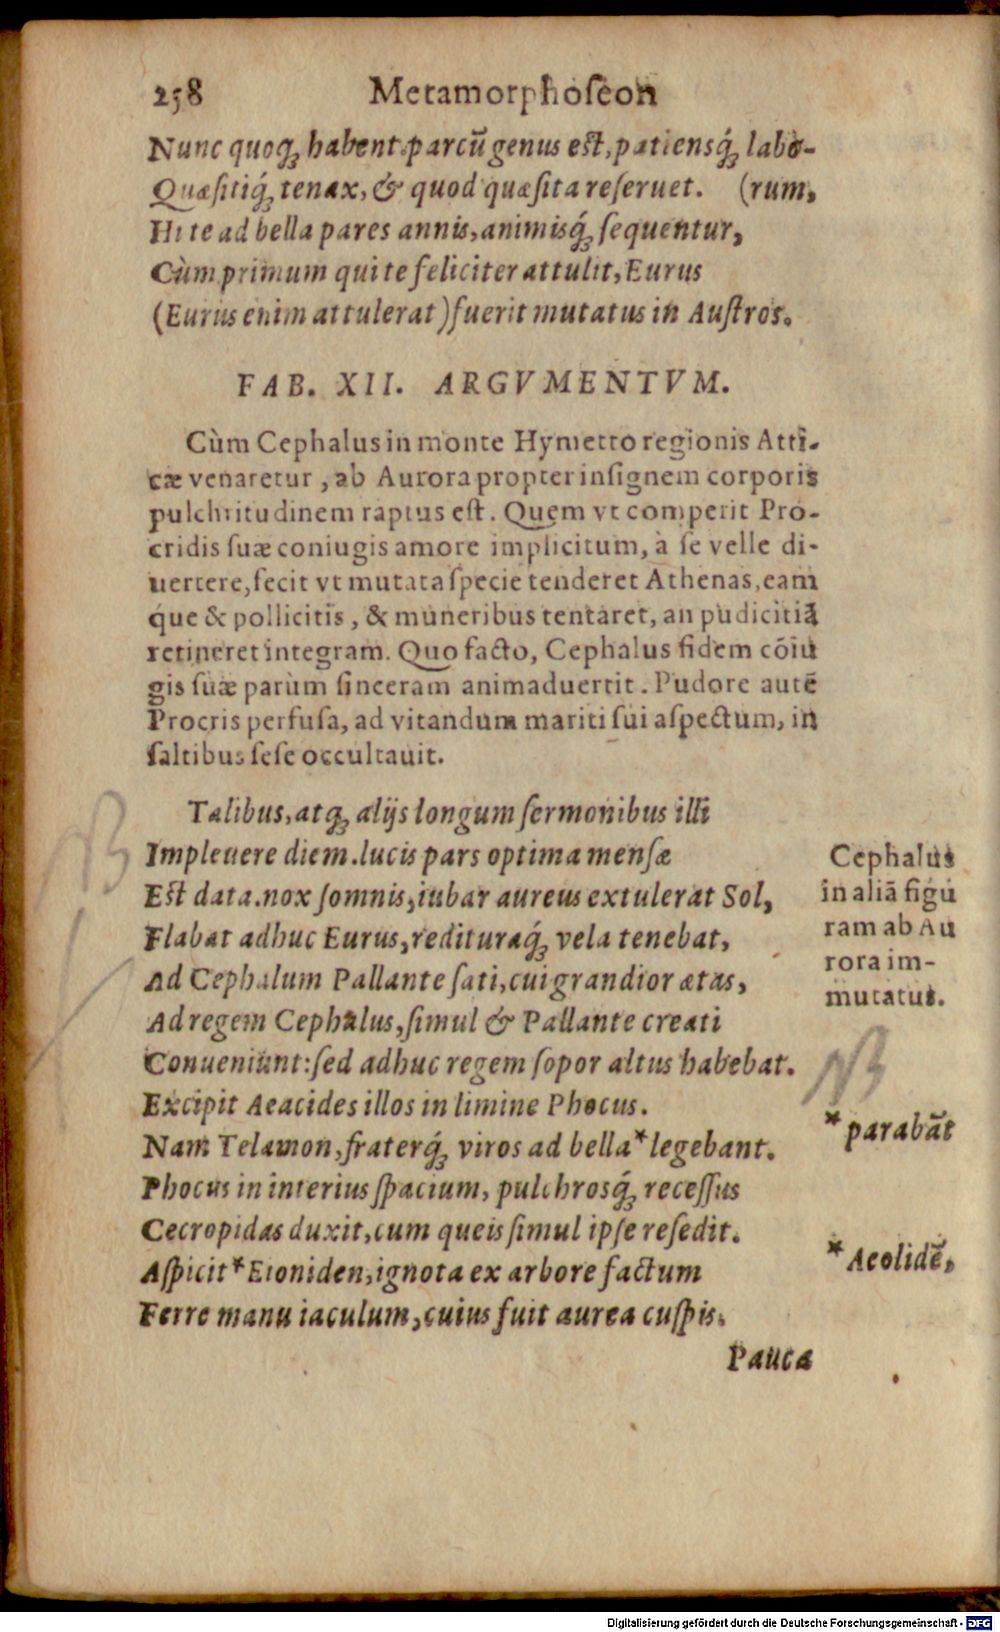 258 Metamorphoseon
Nunc quoq; habent. parcū genus est, patiensq́; labo-
Quæsitiq́; tenax, & quod quæsita reseruet. (rum,
Hi te ad bella pares annis, animisq́; sequentur,
Cùm primum qui te feliciter attulit, Eurus
(Eurus enim attulerat) fuerit mutatus in Austros.
FAB. XII. ARGVMENTVM.
Cùm Cephalus in monte Hymetto regionis Atti-
cæ venaretur, ab Aurora propter insignem corporis
pulchritudinem raptus est. Quem vt comperit Pro-
cridis suæ coniugis amore implicitum, à se velle di-
uertere, fecit vt mutata specie tenderet Athenas, eam
q́ue & pollicitis, & muneribus tentaret, an pudicitiā
retineret integram. Quo facto, Cephalus fidem cōiu
gis suæ parùm sinceram animaduertit. Pudore autē
Procris perfusa, ad vitandum mariti sui aspectum, in
saltibus sese occultauit.
Talibus, atq; alijs longum sermonibus illi
Impleuere diem. lucis pars optima mensæ
Est data. nox somnis, iubar aureus extulerat Sol,
Flabat adhuc Eurus, redituraq́; vela tenebat,
Ad Cephalum Pallante sati, cui grandior ætas,
Ad regem Cephalus, simul & Pallante creati
Conueniunt: sed adhuc regem sopor altus habebat.
Excipit Aeacides illos in limine Phocus.
Nam Telamon, fraterq́; viros ad bella * legebant.
Phocus in interius spacium, pulchrosq́; recessus
Cecropidas duxit, cum queis simul ipse resedit.
Aspicit * Eioniden, ignota ex arbore factum
Ferre manu iaculum, cuius fuit aurea cuspis.
Pauca
Cephalus
in aliā figu
ram ab Au
rora im-
mutatus.
NB
NB
* parabāt
* Aeolidē,
Digitalisierung gefördert durch die Deutsche Forschungsgemeinschaft - DFG